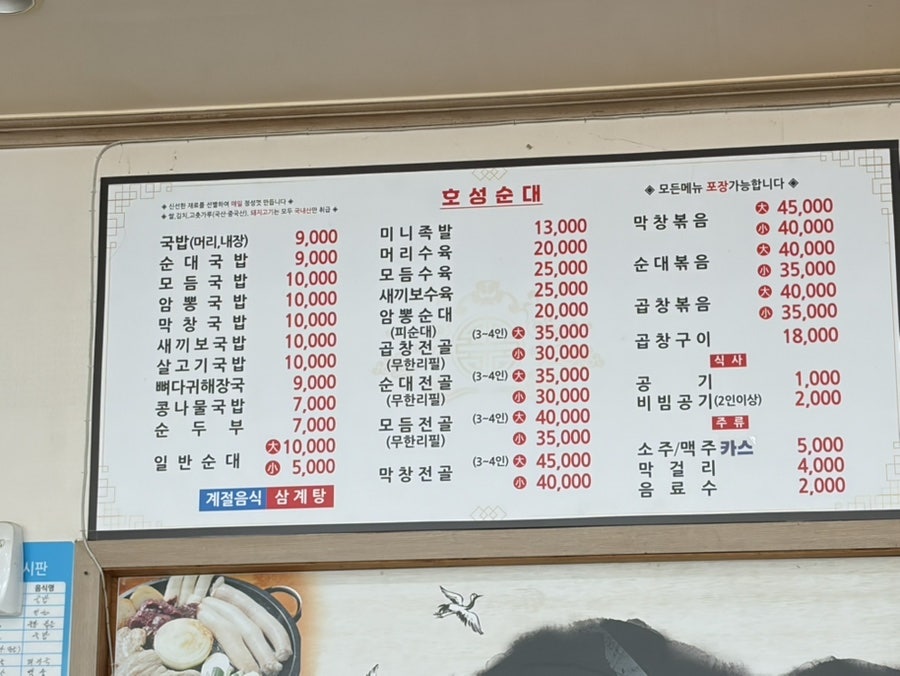 호성순대
◈ 신선한 재료를 선별하여 매일 정성껏 만듭니다 ◈
◈ 쌀,김치,고춧가루(국산·중국산), 돼지고기는 모두 국내산만 취급 ◈
국밥(머리,내장) 9,000
순대국밥 9,000
모듬국밥 10,000
암뽕국밥 10,000
막창국밥 10,000
새끼보국밥 10,000
살고기국밥 10,000
뼈다귀해장국 9,000
콩나물국밥 7,000
순두부 7,000
일반순대 大 10,000
小 5,000
계절음식 삼계탕
미니족발 13,000
머리수육 20,000
모듬수육 25,000
새끼보수육 25,000
암뽕순대 20,000
(피순대)
곱창전골 (3~4인) 大 35,000
(무한리필) 小 30,000
순대전골 (3~4인) 大 35,000
(무한리필) 小 30,000
모듬전골 (3~4인) 大 40,000
(무한리필) 小 35,000
막창전골 (3~4인) 大 45,000
小 40,000
◈ 모든메뉴 포장가능합니다 ◈
막창볶음 大 45,000
小 40,000
순대볶음 大 40,000
小 35,000
곱창볶음 大 40,000
小 35,000
곱창구이 18,000
식사
공기 1,000
비빔공기(2인이상) 2,000
주류
소주/맥주 카스 5,000
막걸리 4,000
음료수 2,000
시판
음식명